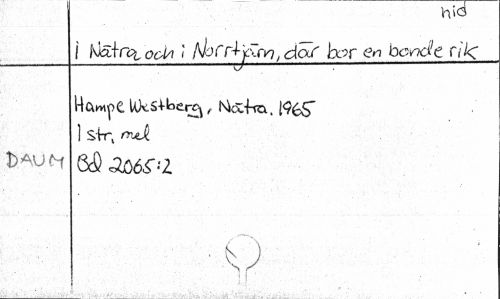 nid
i Nätra och i Norrtjärn, där bor en bonde rik
Hampe Westberg, Nätra. 1965
1 str, mel
DAUM Bd 2065:2